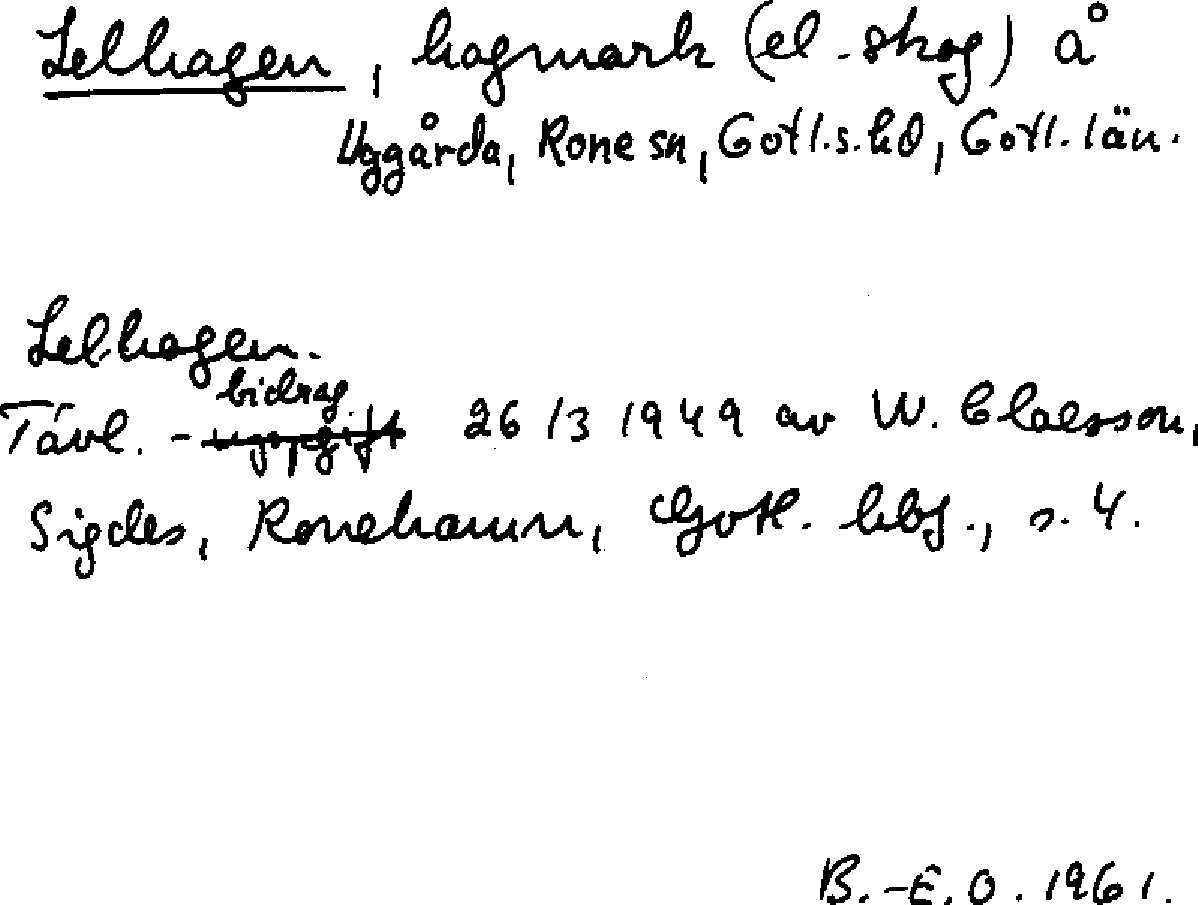 Lelhagen, hagmark (el -skog) å
Uggårda, Rone sn, Gotl.s.hd, Gotl. län.
Lelhagen.
bidrag
Tävl. - uppgift 26/3 1949 av W. Claesson,
Sigdes, Ronehamn, Gotl. hbf., s. 4.
B.-E. O. 1961.